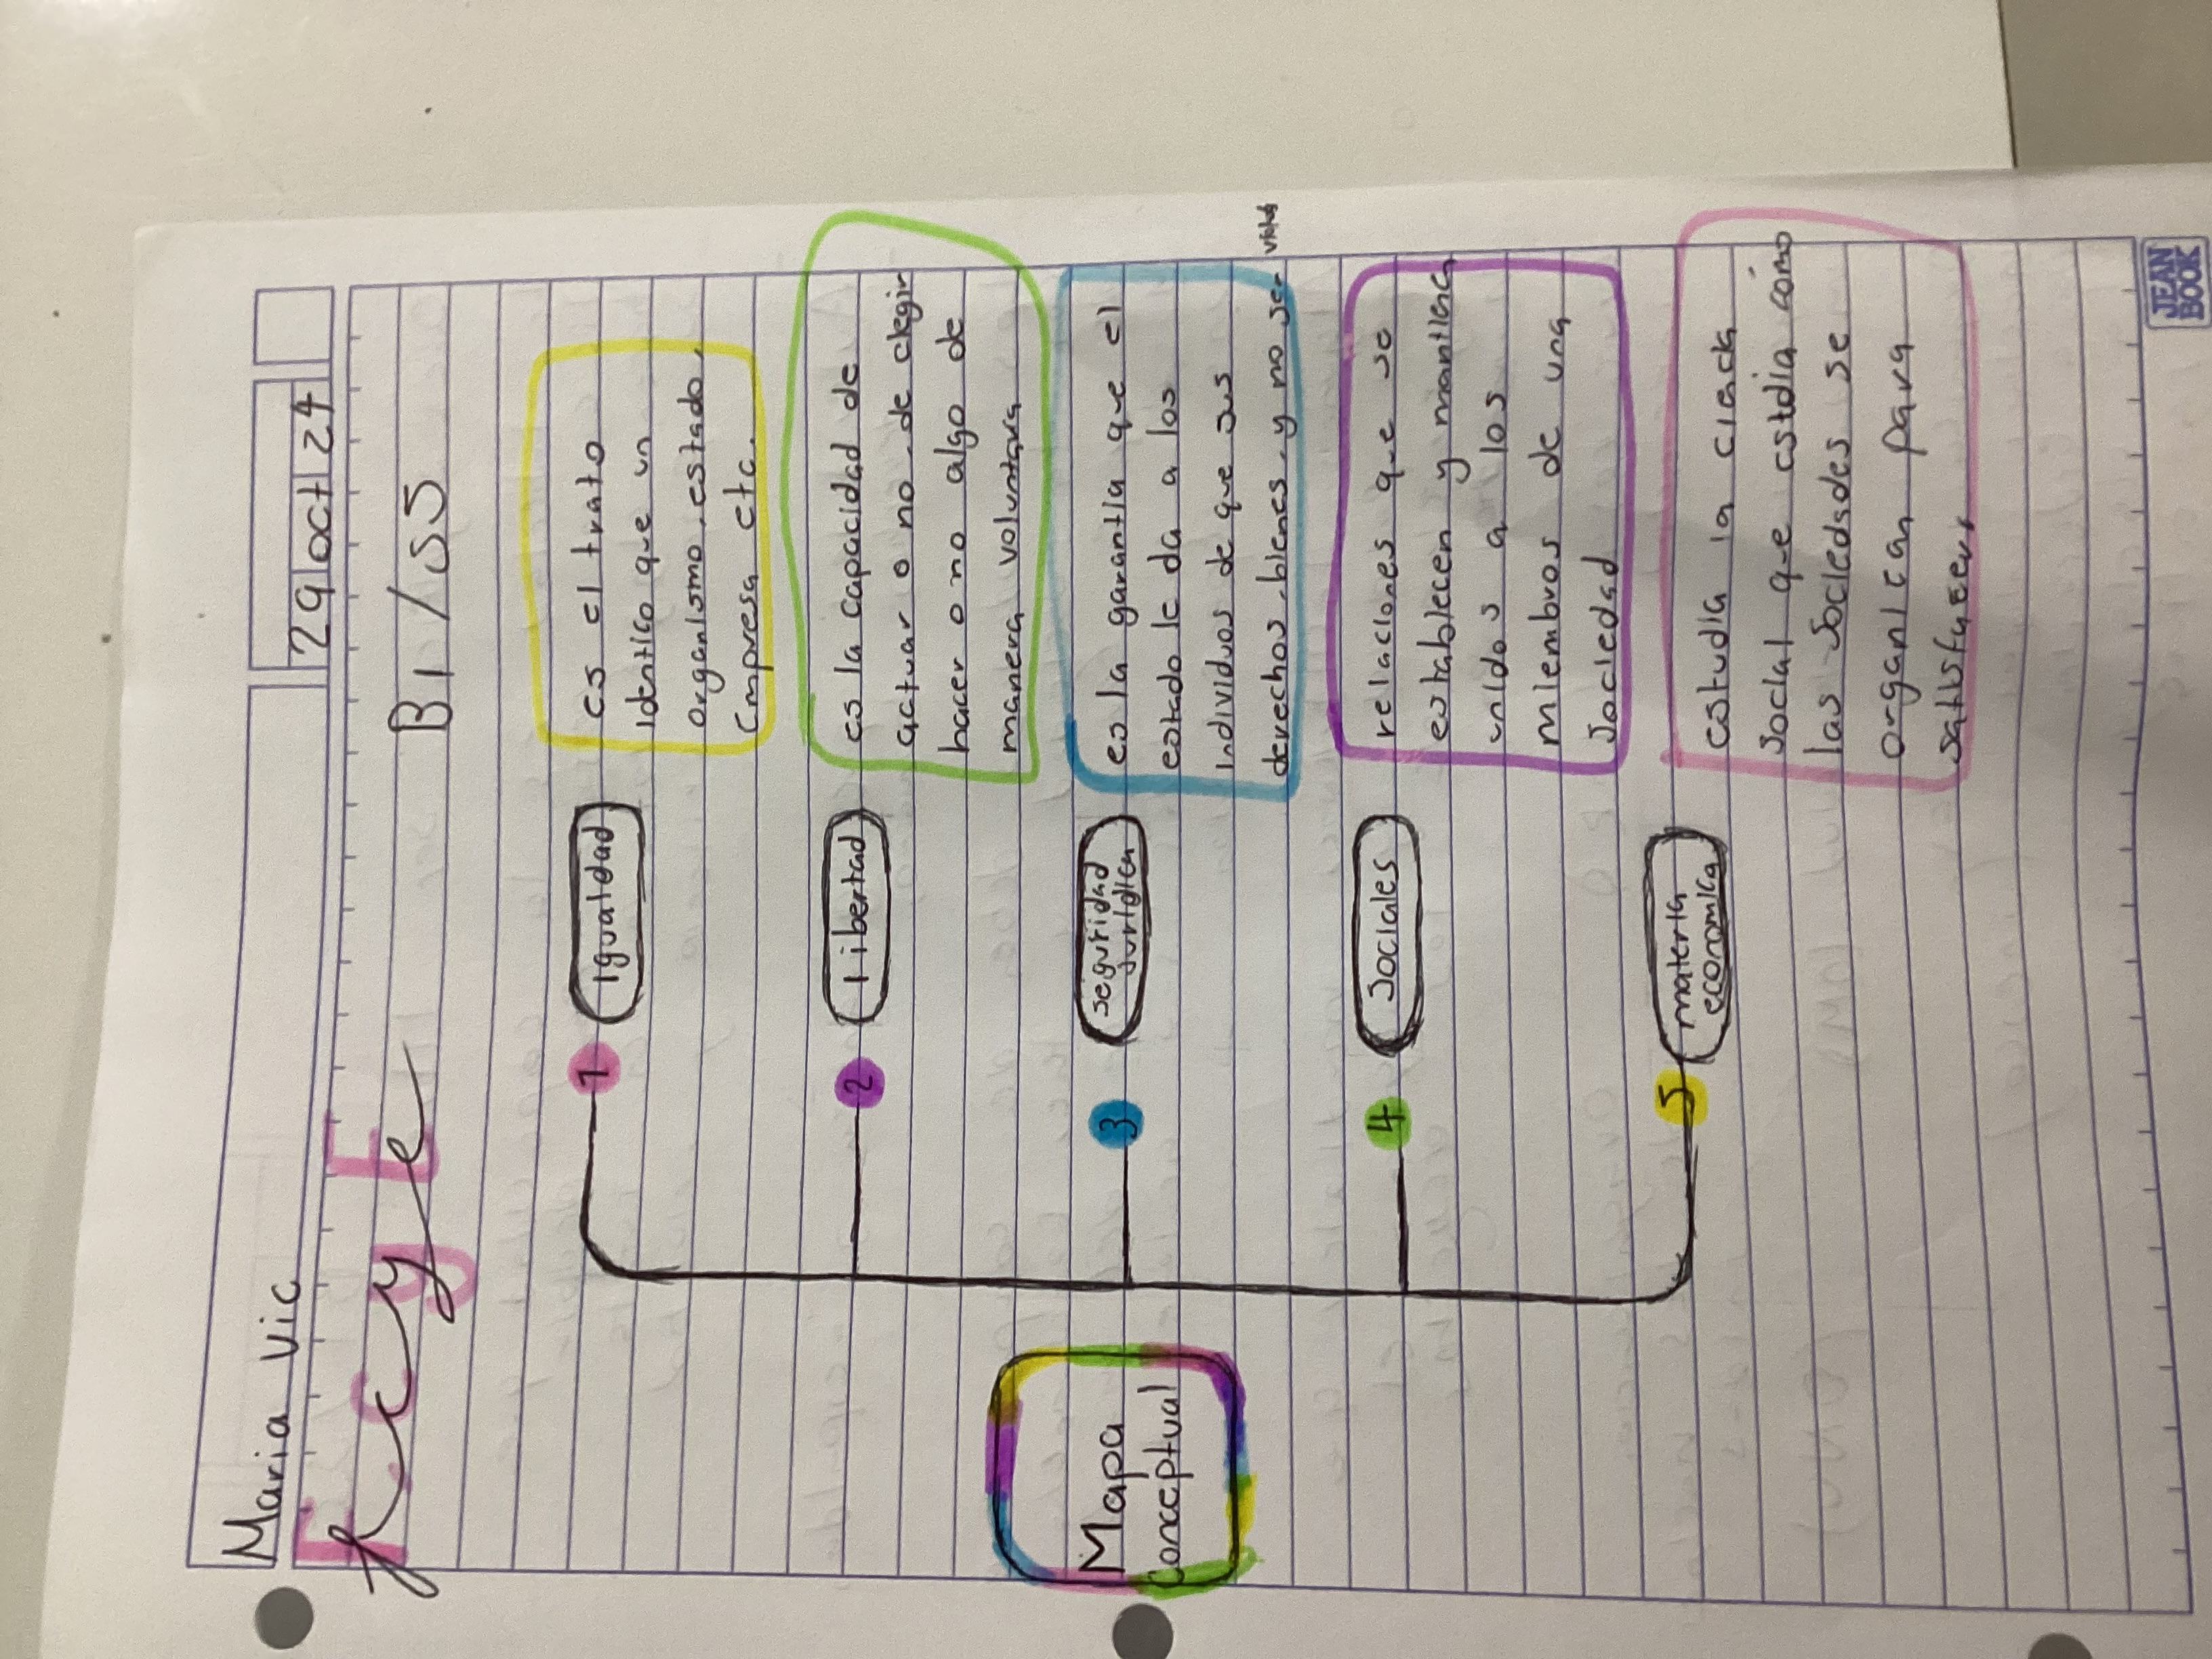 Maria Vic
29 oct 24
F.C y E
B1/S5
Mapa
Conceptual
1
Igualdad
es el trato
identico que un
organismo, estado,
empresa etc.
2
libertad
es la capacidad de
actuar o no, de elegir
hacer o no algo de
manera voluntara
3
seguridad
juridica
es la garantia que el
estado le da a los
individuos de que sus
derechos, bienes, y no ser
4
Sociales
relaciones que se
establecen y mantienen
unidos a los
miembros de una
Sociedad
5
materia
economica
estudia la
social que estdia cómo
las sociedades se
organican para
satisfacer,
JEAN
BOOK